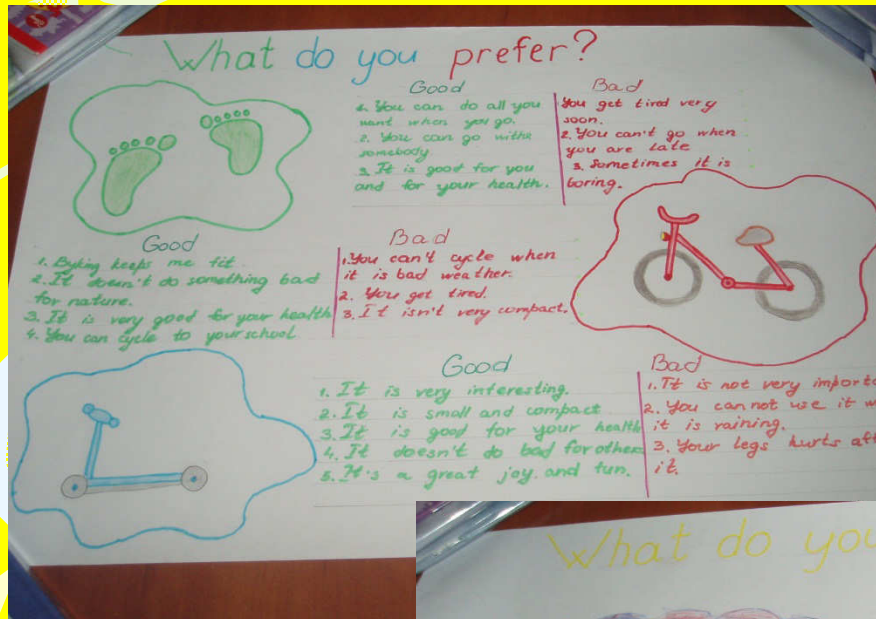 What do you prefer?
Good
1. You can do all you
want when you go.
2. You can go withe
somebody.
3. It is good for you
and for your health.
Bad
You get tired very
soon.
2. You can't go when
you are late
3. Sometimes it is
boring.
Good
1. Byking keeps me fit
2. It doesn't do something bad
for nature.
3. It is very good for your health
4. You can cycle to your school
Bad
1. You can't cycle when
it is bad weather.
2. You get tired.
3. It isn't very compact.
Good
1. It is very interesting.
2. It is small and compact
3. It is good for your health
4. It doesn't do bad for other
5. It's a great joy. and fun.
Bad
1. It is not very importa
2. You can not use it w
it is raining.
3. Your legs hurts aft
it.
What do you